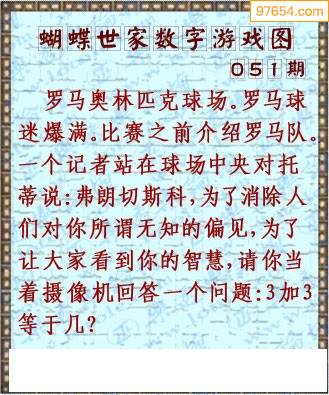 97654.com
蝴蝶世家数字游戏图
051期
罗马奥林匹克球场。罗马球
迷爆满。比赛之前介绍罗马队。
一个记者站在球场中央对托
蒂说:弗朗切斯科,为了消除人
们对你所谓无知的偏见,为了
让大家看到你的智慧,请你当
着摄像机回答一个问题:3加3
等于几?